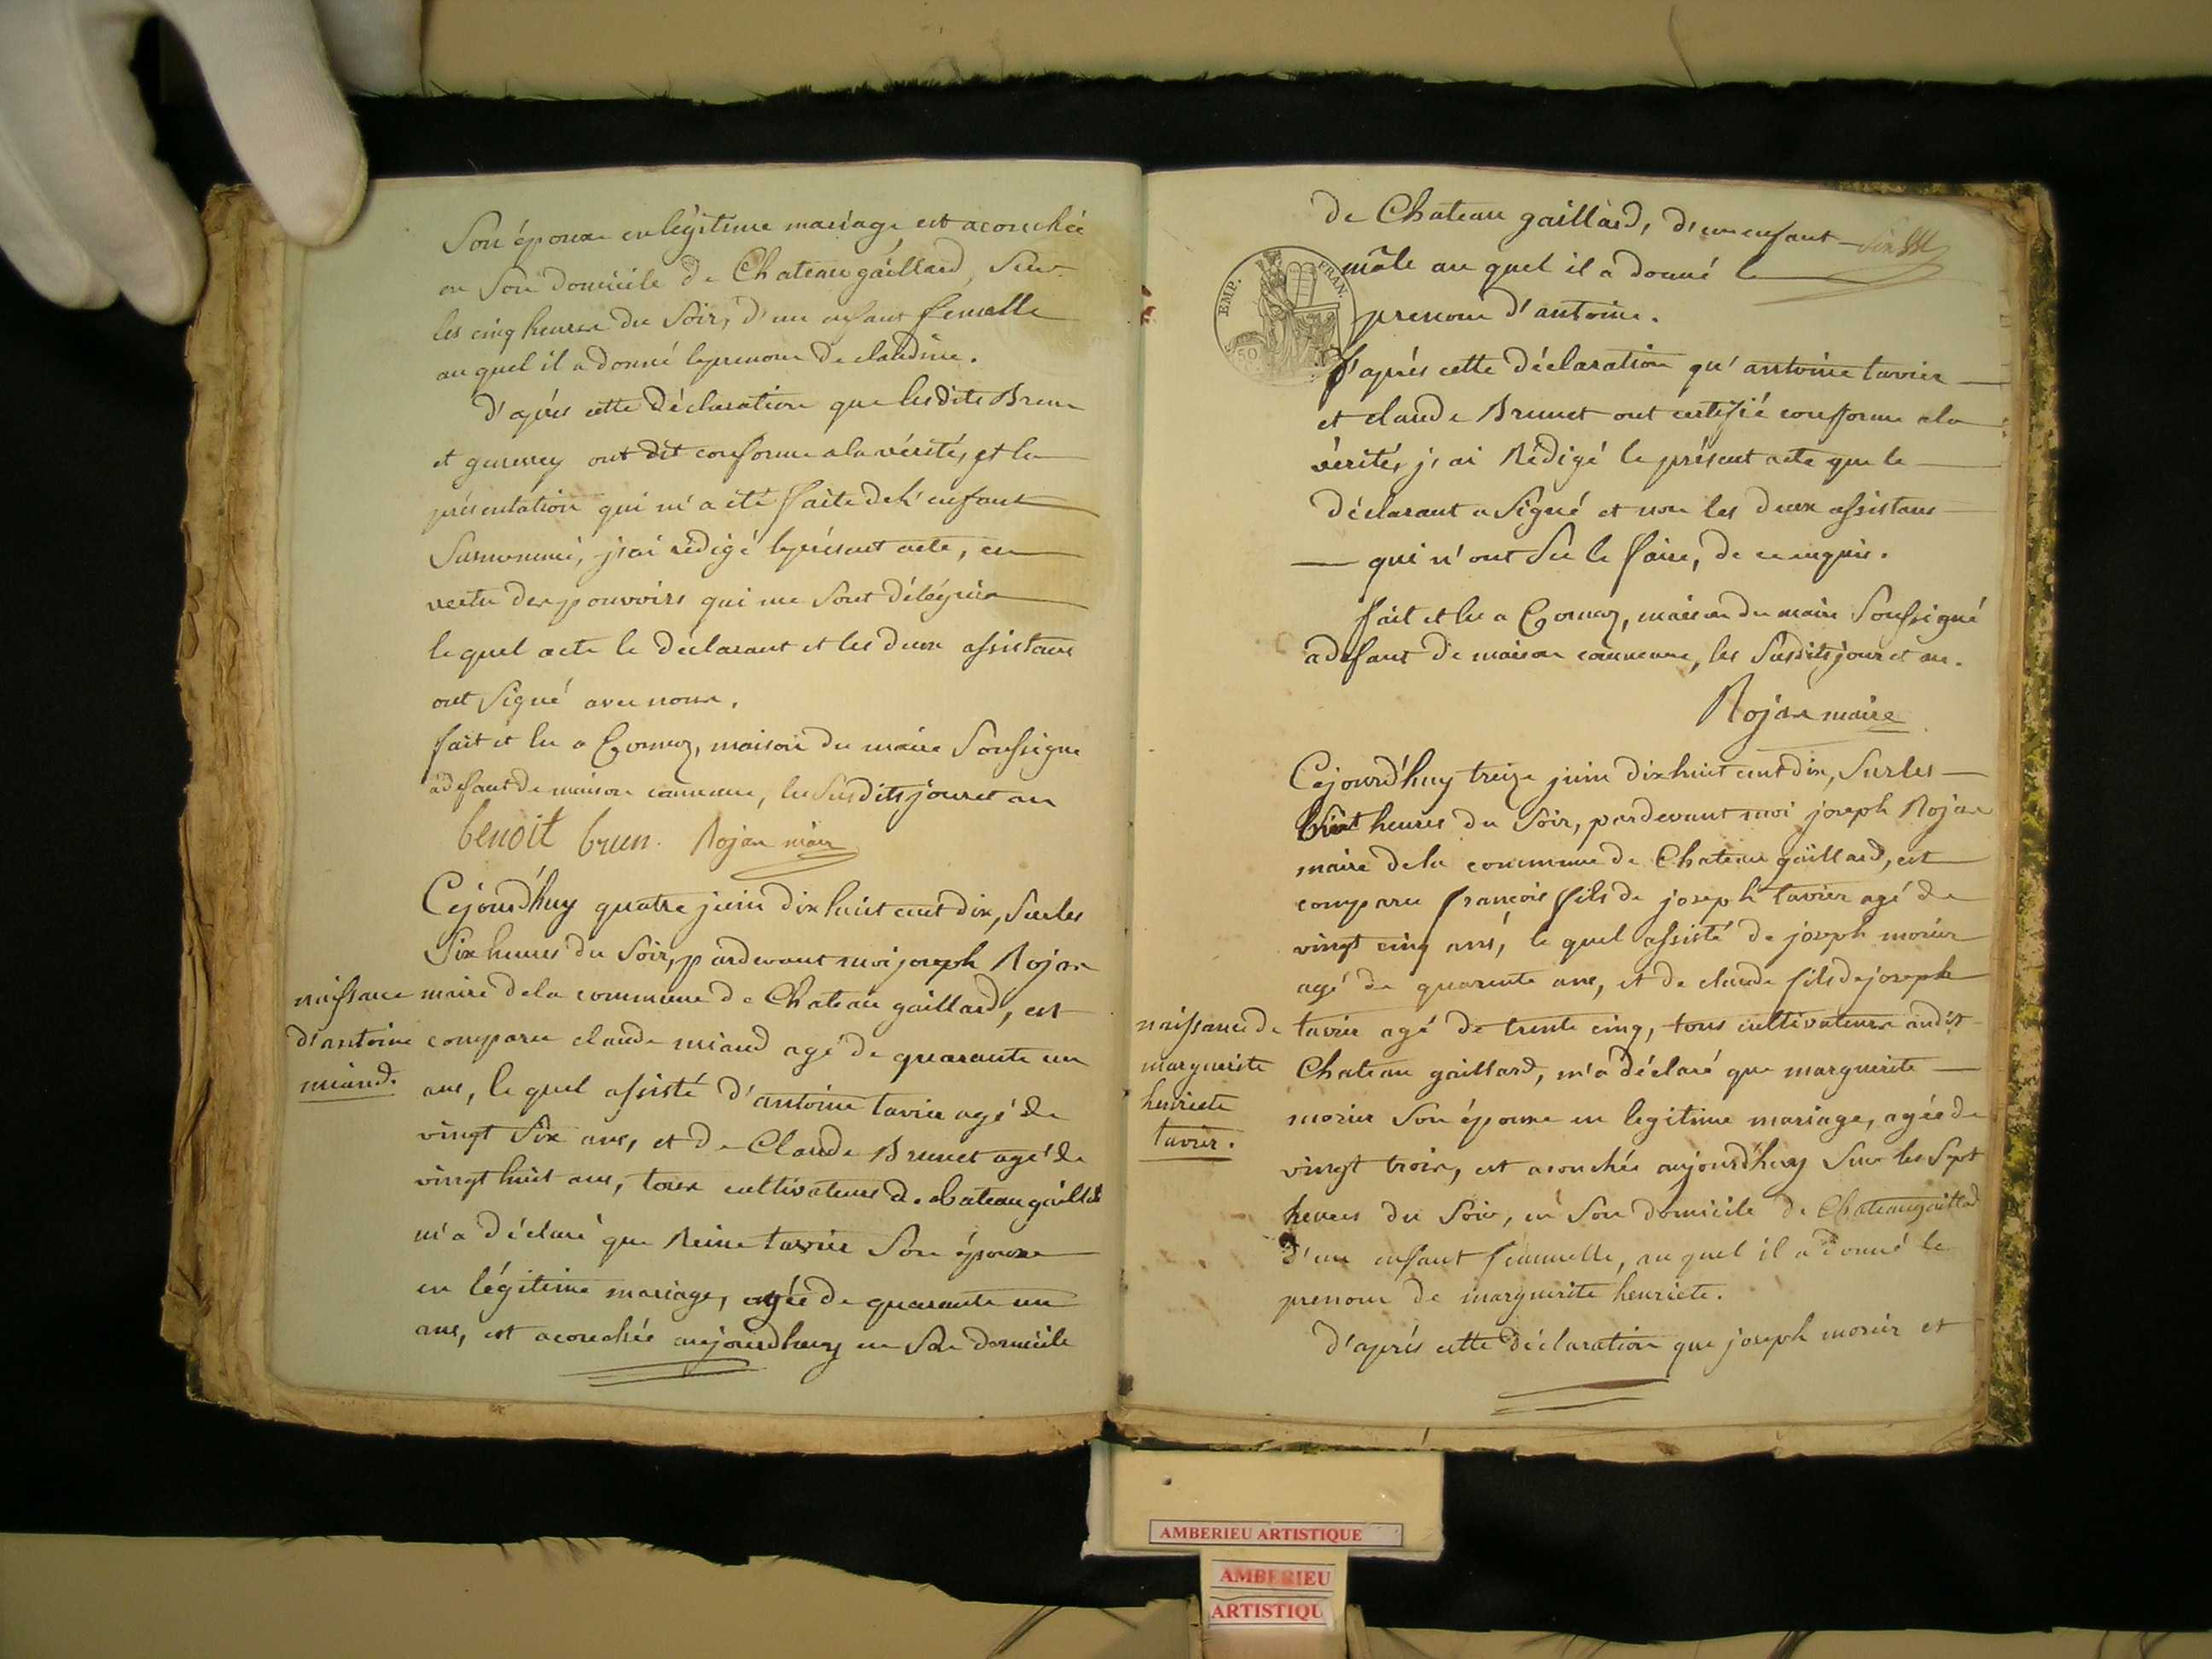 Son épouse en légitime mariage est acouchée
en Son domicile de Chateau gaillard, Sur
les cinq heures du Soir, d'un enfant femelle
au quel il a donné le prenom de claudine.
d'après cette déclaration que les dits Brun
et ont dit conforme a la vérité, et la
présentation qui m'a été faite de l'enfant
Surnommé, j'ai rédigé le présent acte, en
vertu des pouvoirs qui me Sont délégués
le quel acte le déclarant et les deux assistans
ont Signé avec nous.
fait et lu a Cormoz, maison du maire Soussigné
à défaut de maison commune, les Susdits jour et an
benoit brun. Rojan maire
Cejourd'huy quatre juin dix huit cent dix, Sur les
Six heures du Soir, pardevant moi joseph Rojan
naissance
d'antoine
miand.
maire de la commune de Chateau gaillard, est
comparu claude miand agé de quarante un
ans, le quel assisté d'antoine tavier agé de
vingt Six ans, et de Claude Brunet agé de
vingt huit ans, tous cultivateurs de chateau gaillard
m'a déclaré que Reine tavier Son épouse
en légitime mariage, agée de quarante un
ans, est acouchée aujourdhuy en Son domicile
de Chateau gaillard, d'un enfant
mâle au quel il a donné le
EMP. FRAN.
50
prenom d'antoine.
D'après cette déclaration qu'antoine tavier
et claude Brunet ont certifié conforme a la
vérité, j'ai Rédigé le présent acte que le
déclarant a Signé et non les deux assistans
qui n'ont Su le faire, de ce enquis.
fait et lu a Cormoz, maison du maire Soussigné
a défaut de maison commune, les Susdits jour et an.
Rojan maire
Cejourd'huy treize juin dix huit cent dix, Sur les
huit heures du Soir, pardevant moi joseph Rojan
maire de la commune de Chateau gaillard, est
comparu françois fils de joseph tavier agé de
vingt cinq ans, le quel assisté de joseph morier
agé de quarente ans, et de claude fils de joseph
naissance de
marguerite
henriete
tavier.
tavier agé de trente cinq, tous cultivateurs audit
Chateau gaillard, m'a déclaré que marguerite
morier Son épouse en legitime mariage, agée de
vingt trois, est acouchée aujourd'huy Sur les Sept
heures du Soir, en Son domicile de Chateaugaillard
d'un enfant femmelle, au quel il a donné le
prenom de marguerite henriete.
d'après cette déclaration que joseph morier et
AMBERIEU ARTISTIQUE
AMBERIEU
ARTISTIQU